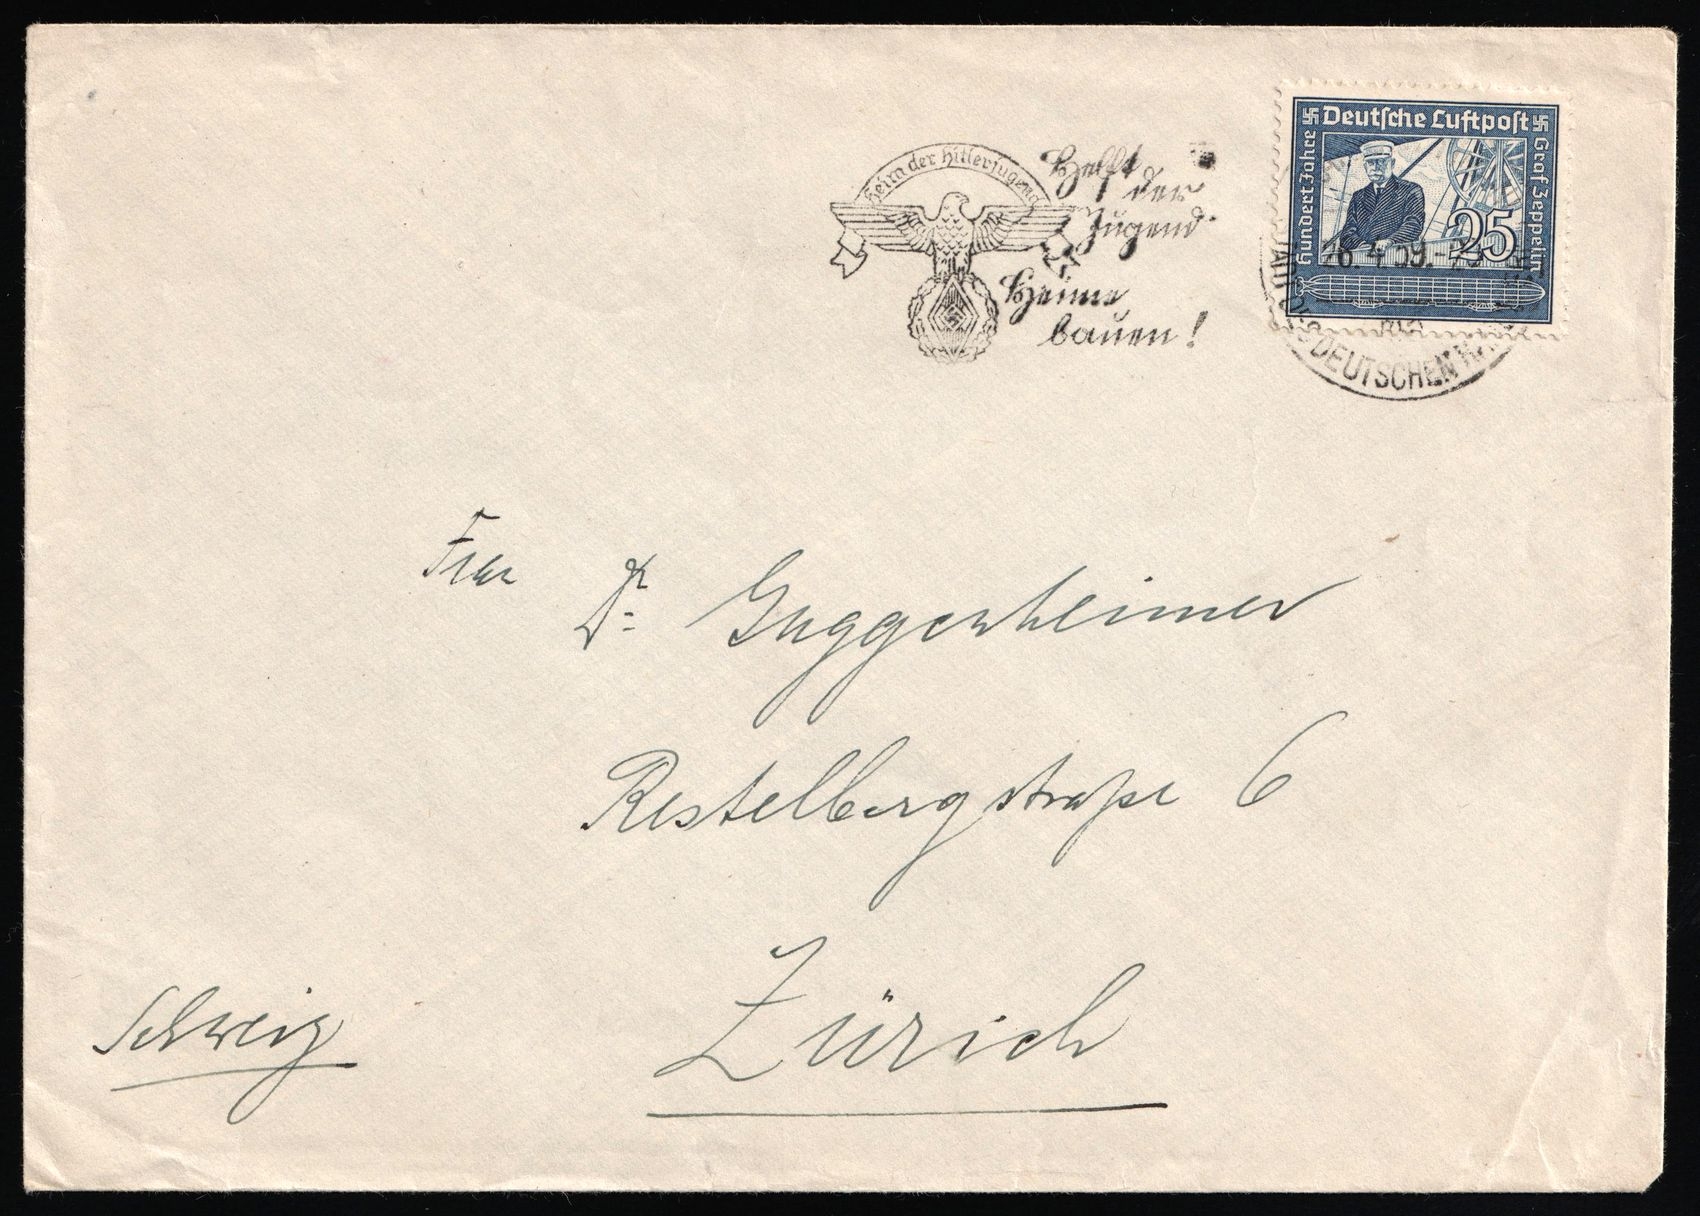 Deutsche Luftpost
Hundert Jahre
Graf Zeppelin
25
Heim der Hitlerjugend
Helft
der
Jugend
Heime
bauen!
26.4.39.-
DEUTSCHEN
Frau Dr. Guggenheimer
Restelbergstraße 6
Zürich
Schweiz